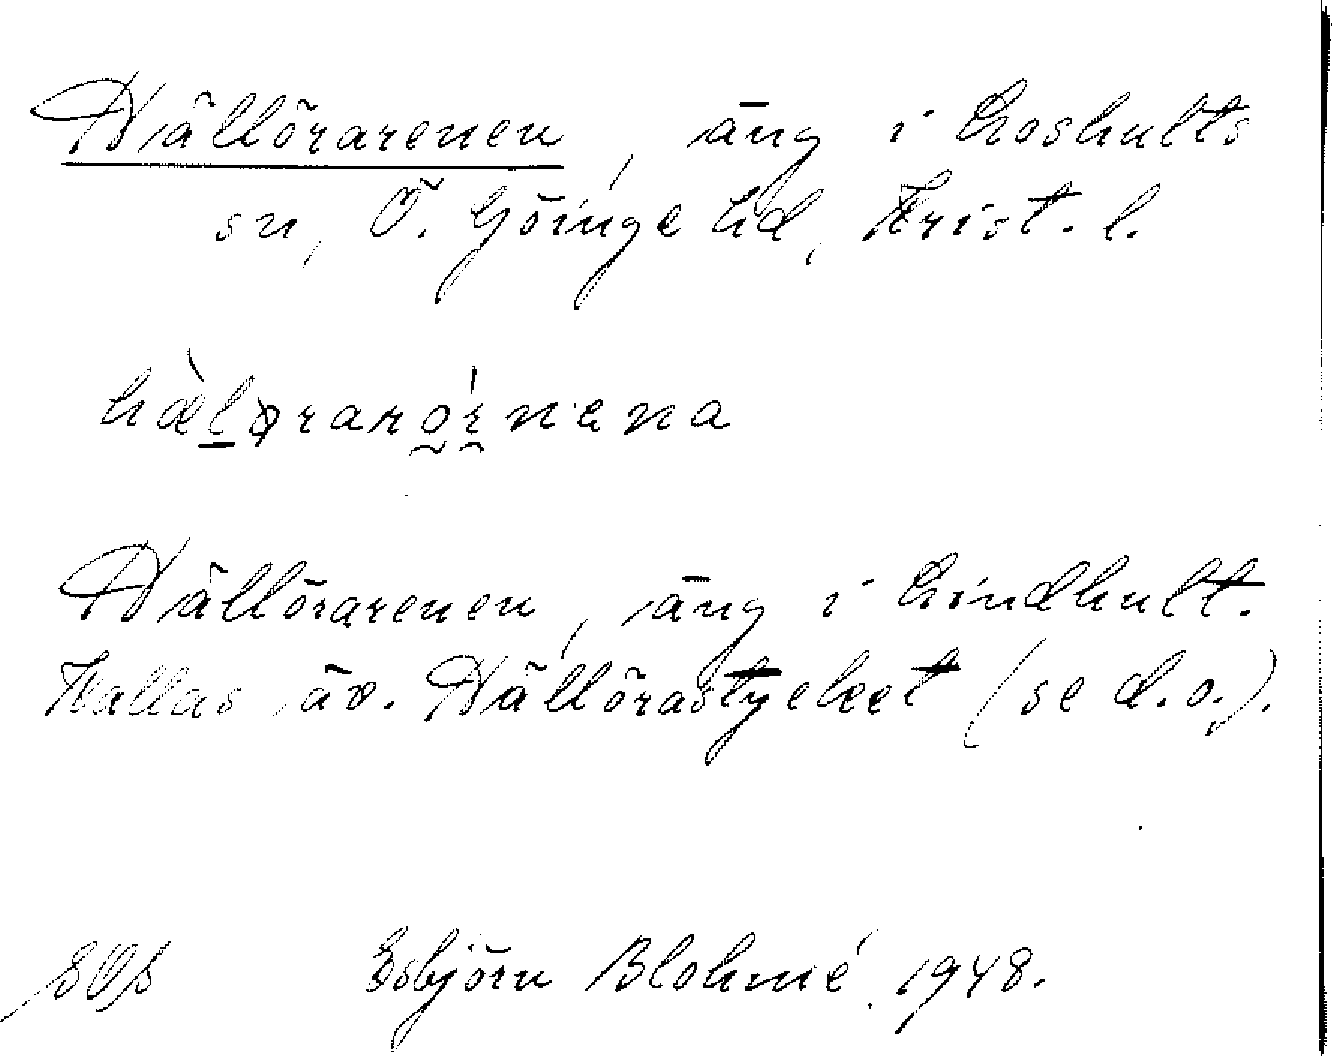 Hällörarenen, äng i Loshults
sn, Ö. Göinge hd, Krist. l.
hælørarǫ́rnena
Hällörarenen, äng i Lindhult.
Kallas äv. Hällörastycket (se d.o.).
Esbjörn Blohmé 1948.